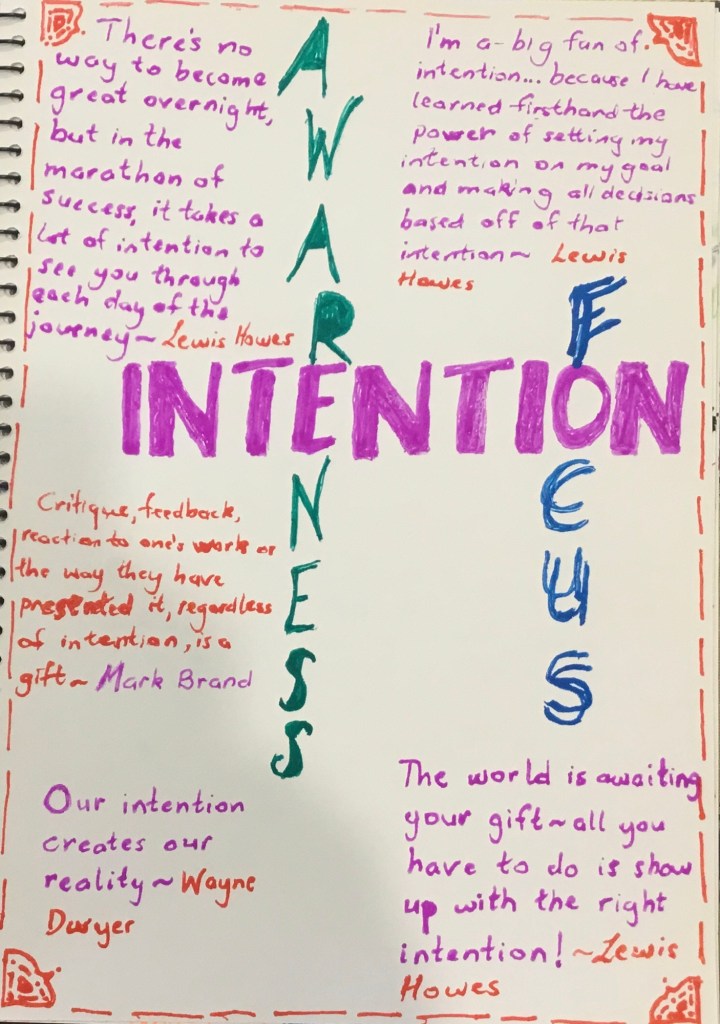 There's no
way to become
great overnight,
but in the
marathon of
success, it takes a
lot of intention to
see you through
each day of the
journey~ Lewis Howes
I'm a big fan of
intention... because I have
learned firsthand the
power of setting my
intention on my goal
and making all decisions
based off of that
intention~ Lewis
Howes
AWARENESS
FOCUS
INTENTION
Critique, feedback,
reaction to one's work or
the way they have
presented it, regardless
of intention, is a
gift~ Mark Brand
Our intention
creates our
reality~ Wayne
Dwyer
The world is awaiting
your gift~all you
have to do is show
up with the right
intention! ~Lewis
Howes